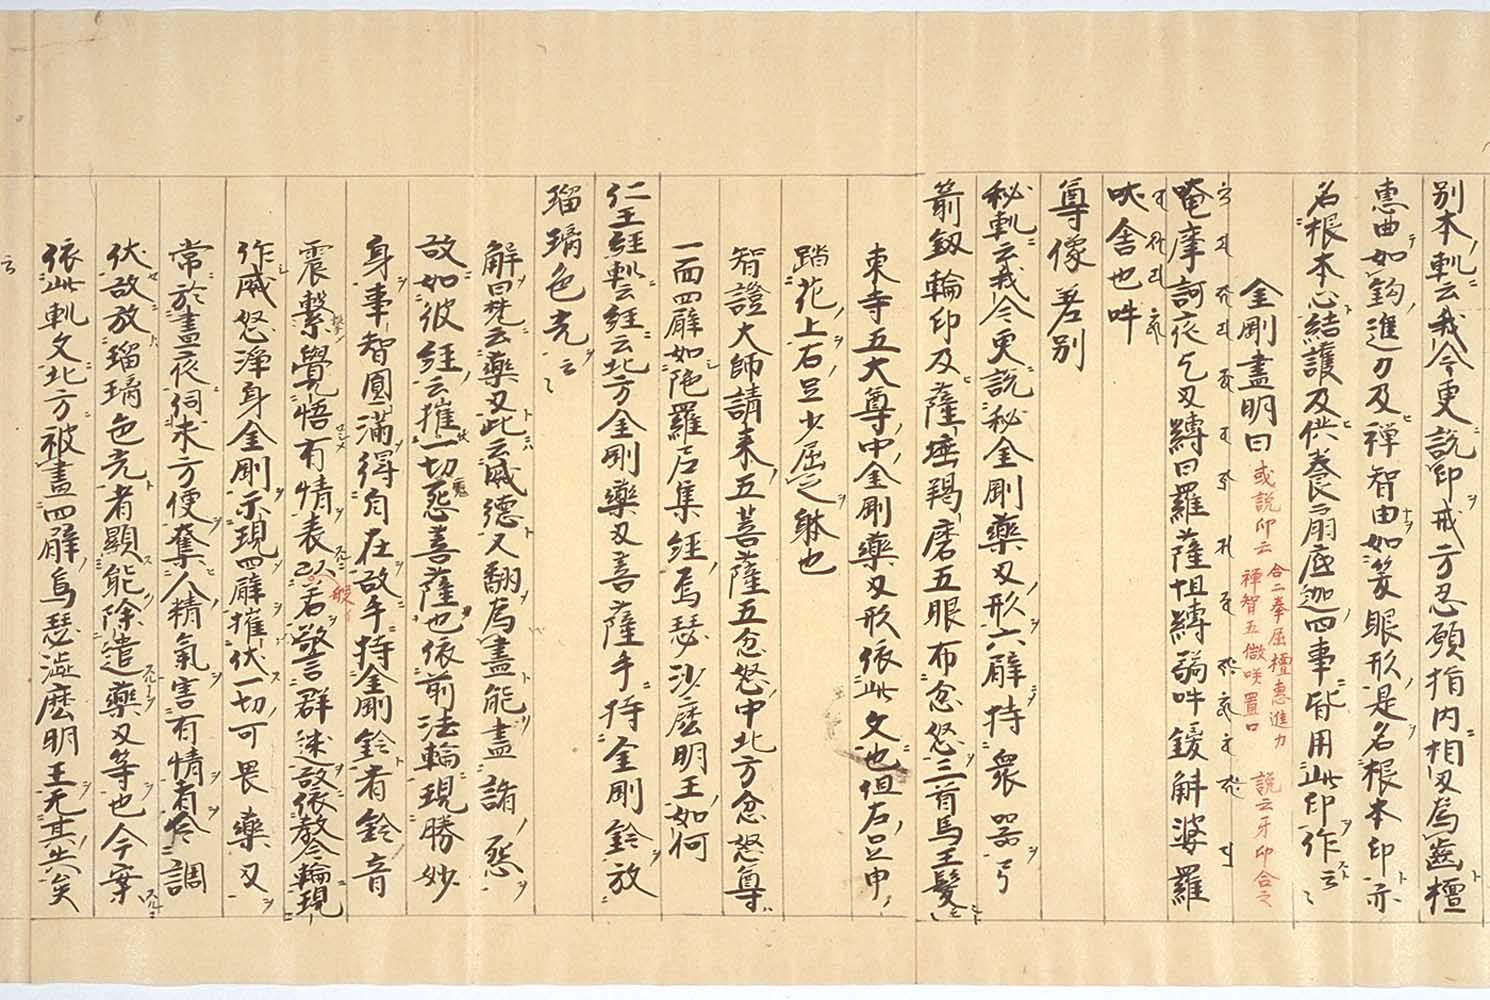 別本軌云我今更説印戒方忍願指内相叉為齒檀
惠曲如鈎進力及禅智由如笑眼形是名根本印亦
名根本心結護及供養扇底迦四事皆用此印作云々
金剛盡明曰
或説印云 合二拳屈檀惠進力
禅智五微咲置口 説云牙印合之
唵摩訶夜乞叉縛曰羅薩怛縛弱吽鑁斛婆羅
吠舎也吽
尊像差別
秘軌云我今更説秘金剛藥叉形六臂持衆器弓
箭釼輪印及薩埵羯磨五眼布忿怒三首馬王髮
東寺五大尊中金剛藥叉形依此文也但右足申
踏花上右足少屈之躰也
智證大師請来五菩薩五忿怒中北方忿怒尊
一面四臂如陁羅尼集経烏瑟沙麼明王如何
仁王経軌云経云北方金剛藥叉菩薩手持金剛鈴放
瑠璃色光云々
解曰梵云藥叉此云威德又翻為盡能盡諸怨
故如彼経云摧一切魔怨菩薩也依前法輪現勝妙
身事智圓滿得自在故手持金剛鈴者鈴音
震擊覺悟有情表以般若警群迷故依教令輪現
作威怒淨身金剛示現四臂摧伏一切可畏藥叉
常於晝夜伺求方便奪人精氣害有情者令調
伏故放瑠璃色光者顯能除遣藥叉等也今案
依此軌文北方被畫四臂烏瑟澁麼明王尤其失矣
云